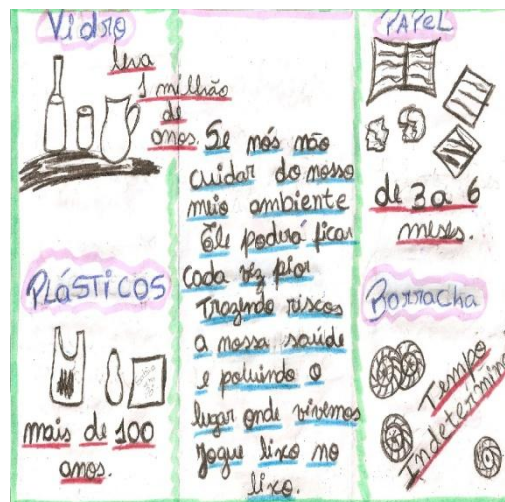 Vidro
leva
1 milhão
de
anos.
PLÁSTICOS
mais de 100
anos.
Se nós não
cuidar do nosso
meio ambiente
Ele poderá ficar
cada vez pior
Trazendo riscos
a nossa saúde
e poluindo o
lugar onde vivemos
Jogue lixo no
lixo.
PAPEL
de 3 a 6
meses.
Borracha
Tempo